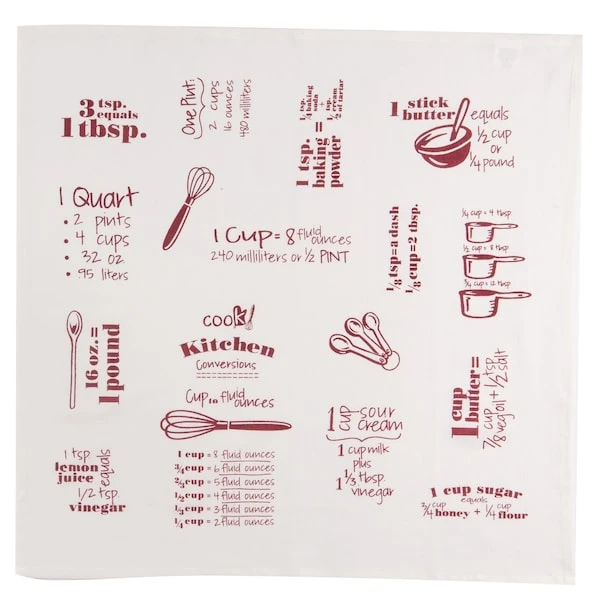 3 tsp.
equals
1 tbsp.
One Pint:
2 cups
16 ounces
480 milliliters
1 tsp.
baking
powder
=
¼ tsp.
baking
soda
+
½ tsp.
cream
of tartar
1 stick
butter
equals
½ cup
or
¼ pound
1 Quart
• 2 pints
• 4 cups
• 32 oz
• .95 liters
1 Cup = 8 fluid ounces
240 milliliters or ½ PINT
⅛ tsp=a dash
⅛ cup=2 tbsp.
¼ cup = 4 tbsp
½ cup = 8 tbsp
¾ cup = 12 tbsp
16 oz.=
1 pound
cook
Kitchen
Conversions
Cup to fluid ounces
1 cup = 8 fluid ounces
¾ cup = 6 fluid ounces
⅔ cup = 5 fluid ounces
½ cup = 4 fluid ounces
⅓ cup = 3 fluid ounces
¼ cup = 2 fluid ounces
1 cup sour cream
1 cup milk
plus
1 ⅓ tbsp.
vinegar
1 cup
butter=
⅞ cup veg oil + ½ tsp. salt
1 tsp
lemon
juice
equals
1/2 tsp.
vinegar
1 cup sugar
equals
¾ cup honey + ¼ cup flour